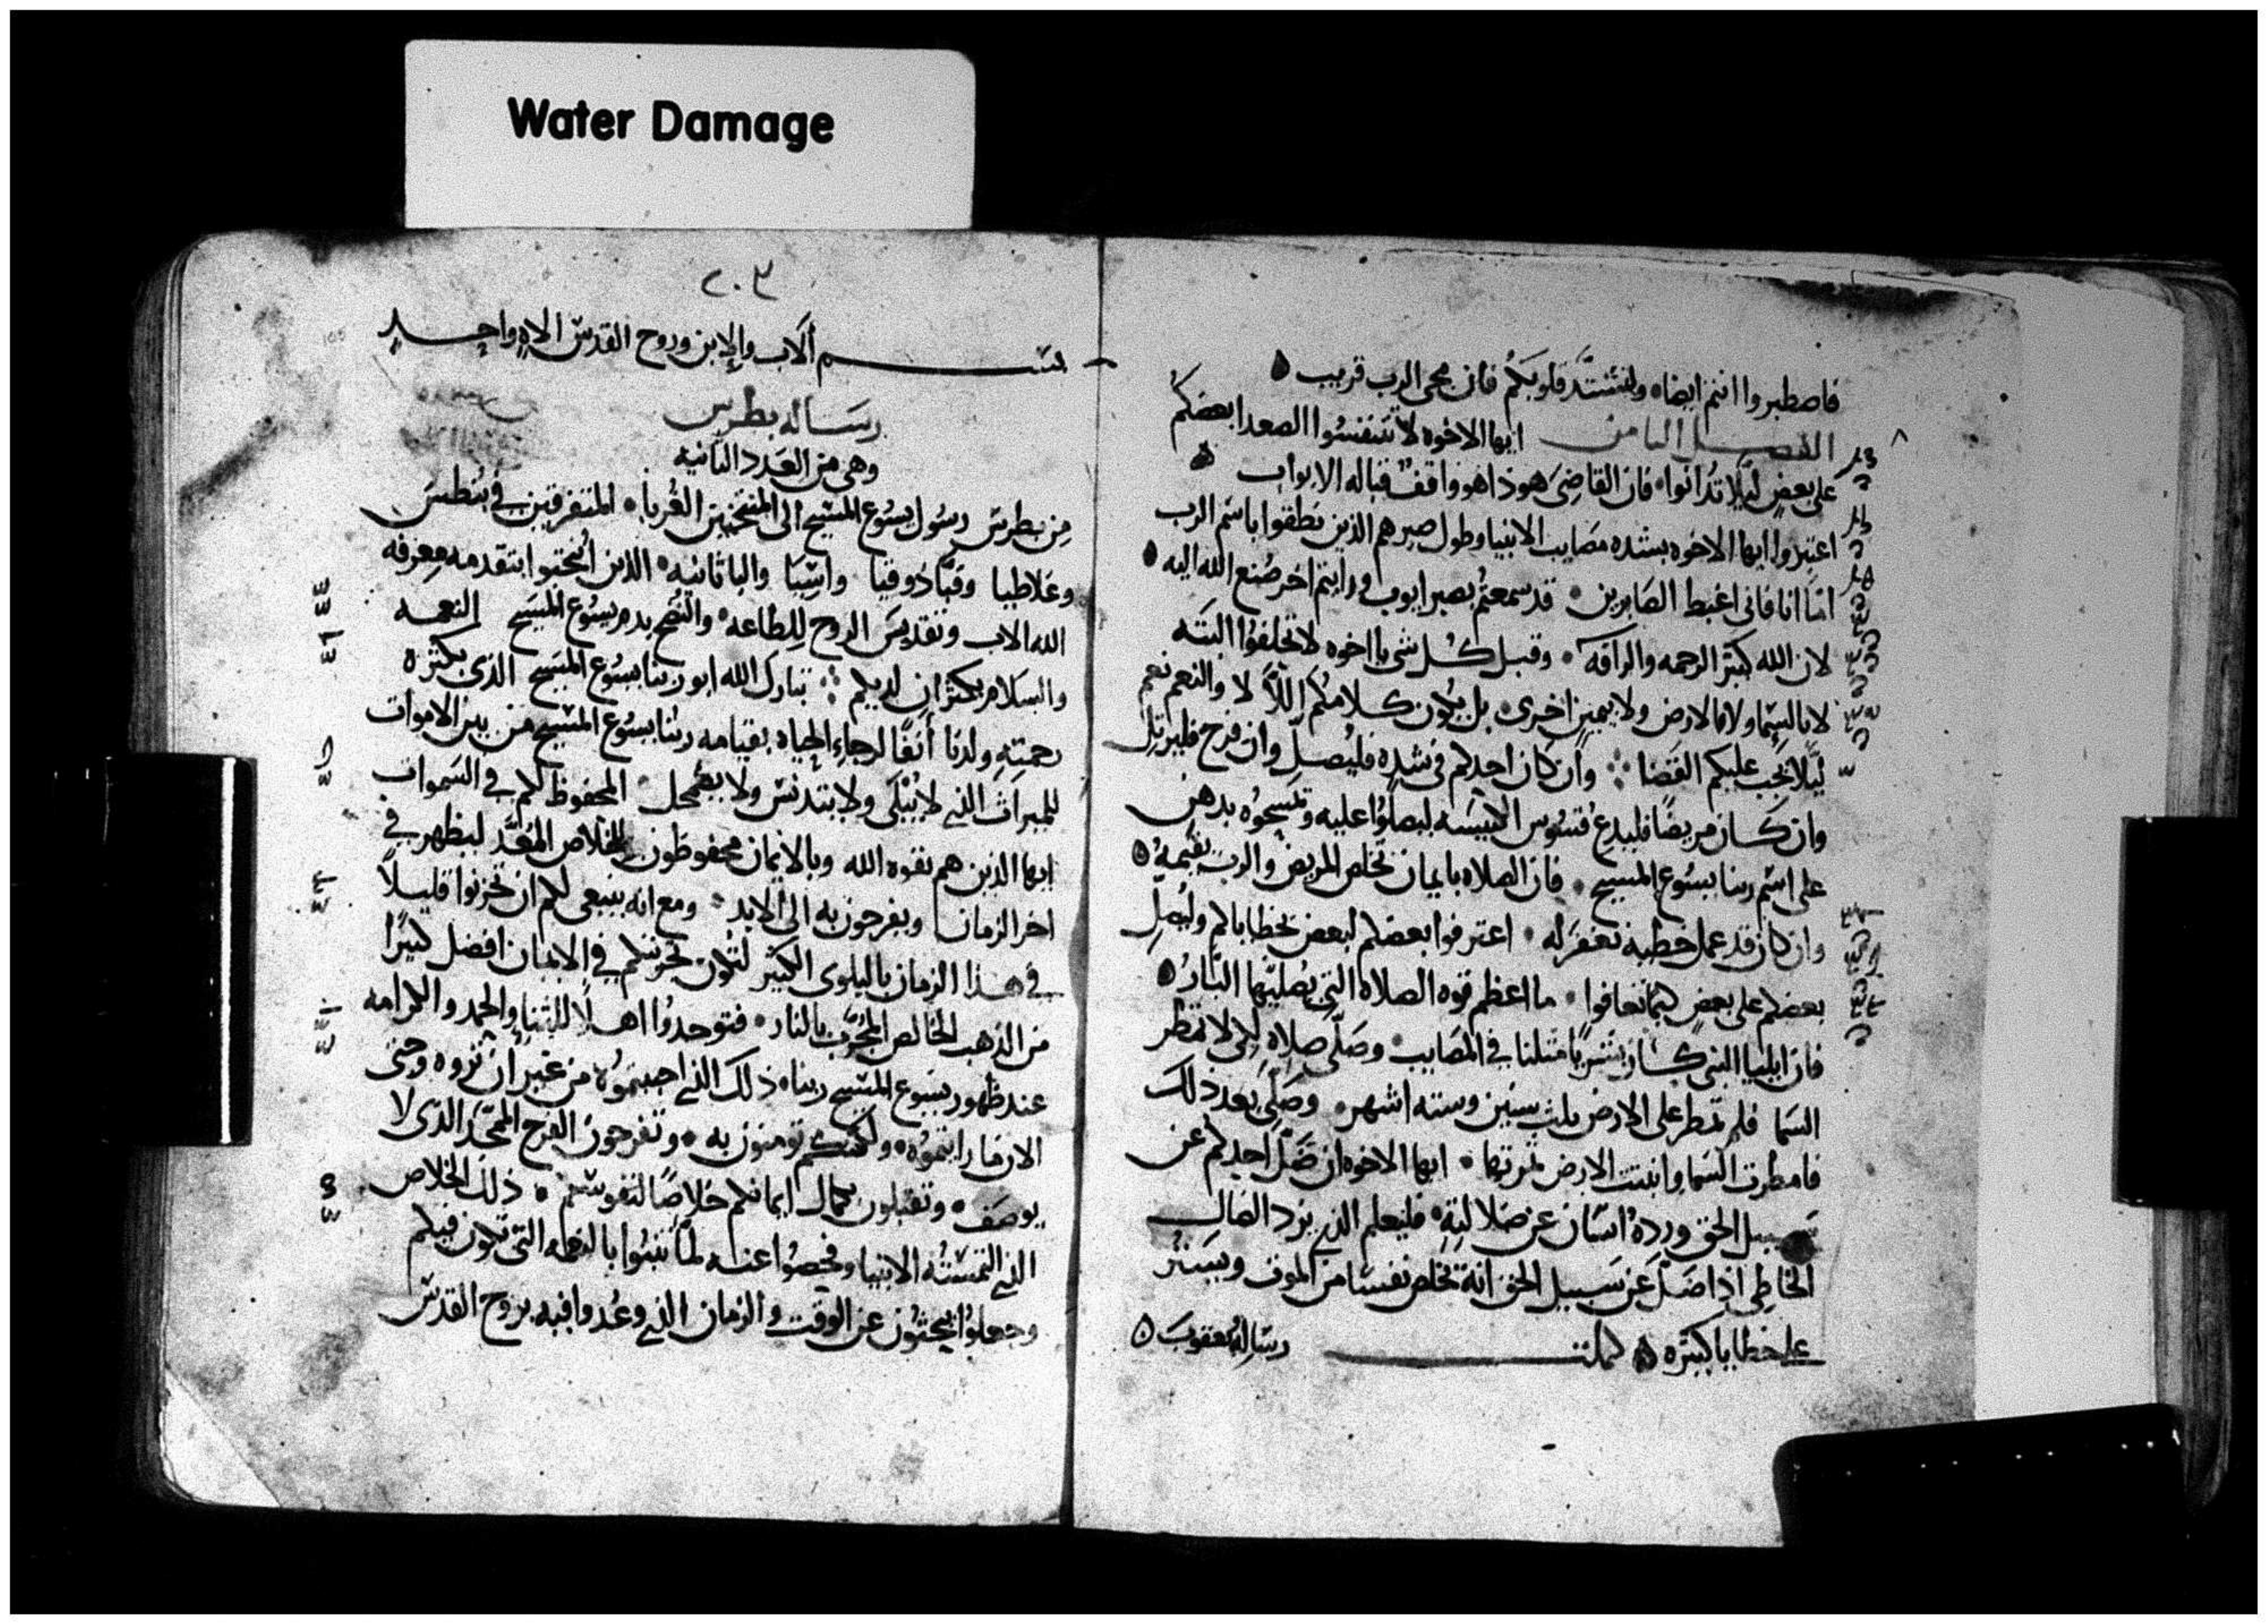 Water Damage
فاصطبروا انتم ايضا ولتشتد قلوبكم فان مجى الرب قريب
الفصل الثامن ايها الاخوه لا تتنفسوا الصعدا بعضكم
على بعض ليلا تدانوا فان القاضى هوذا هو واقف قباله الابواب
اعتبروا ايها الاخوه بشده مصايب الانبيا وطول صبرهم الذين نطقوا باسم الرب
انا فانى اغبط الصابرين قد سمعتم بصبر ايوب ورايتم اخر صنع الله اليه
لان الله كثير الرحمه والرافه وقبل كل شى يا اخوه لا تحلفوا البته
لا بالسما ولا بالارض ولا بيمين اخرى بل يكون كلامكم اللا لا والنعم نعم
ليلا يجب عليكم القضا وان كان احدكم فى شده فليصل وان فرح فليرتل
وان كان مريضا فليدع قسوس الكنيسه ليصلوا عليه وتمسحوه بدهن
على اسم ربنا يسوع المسيح فان الصلاه بايمان تخلص المريض والرب يقيمه
وان كان قد عمل خطيه تغفر له اعترفوا بعضكم لبعض بخطاياكم وليصل
بعضكم على بعض كيما تعافوا ما اعظم قوه الصلاه التى يصليها البار
فان ايليا النبى كان بشريا مثلنا فى المصايب وصلى صلاه لكى لا تمطر
السما فلم تمطر على الارض ثلث سنين وسته اشهر وصلى بعد ذلك
فامطرت السما وانبتت الارض ثمرتها ايها الاخوه ان ضل احدكم عن
سبيل الحق ورده انسان عن ضلالته فليعلم الذى يرد الضال
الخاطى اذا ضل عن سبيل الحق انه تخلص نفسا من الموت ويستر
على خطايا كثيره كملت رساله يعقوب
٢٠٣
بسم الاب والابن وروح القدس الاه واحد
رساله بطرس
وهى من العدد الثانيه
من بطرس رسول يسوع المسيح الى المنتخبين الغربا المتفرقين فى بنطس
وغلاطيا وقبادوقيا واسيا والباثانيه الذين انتخبوا بتقدمه معرفه
الله الاب وتقديس الروح للطاعه والنضح بدم يسوع المسيح النعمه
والسلام يكثران لديكم تبارك الله ابو ربنا يسوع المسيح الذى بكثره
رحمته ولدنا أنفا لرجاء الحياه بقيامه ربنا يسوع المسيح من بين الاموات
للميراث الذى لا يبلى ولا يتدنس ولا يضمحل المحفوظ لكم فى السموات
ايها الذين هم بقوه الله وبالايمان محفوظون للخلاص المعد ليظهر فى
اخر الزمان وتفرحون به الى الابد ومع انه ينبغى لكم ان تحزنوا قليلا
فى هذا الزمان بالبلوى الكثير لتكون تجربتكم فى الايمان افضل كثيرا
من الذهب الخالص المجرب بالنار فتوجدوا اهلا للثنا والحمد والكرامه
عند ظهور يسوع المسيح ربنا ذلك الذى احببتموه من غير ان تروه وحتى
الان فما رايتموه ولكنكم تومنون به وتفرحون الفرح الممجد الذى لا
يوصف وتقبلون بكمال ايمانكم خلاصا لنفوسكم ذلك الخلاص
الذى التمسته الانبيا وفحصوا عنه لما تنبئوا بالنعمه التى تكون فيكم
وجعلوا يبحثون عن الوقت والزمان الذى وعدوا فيه بروح القدس